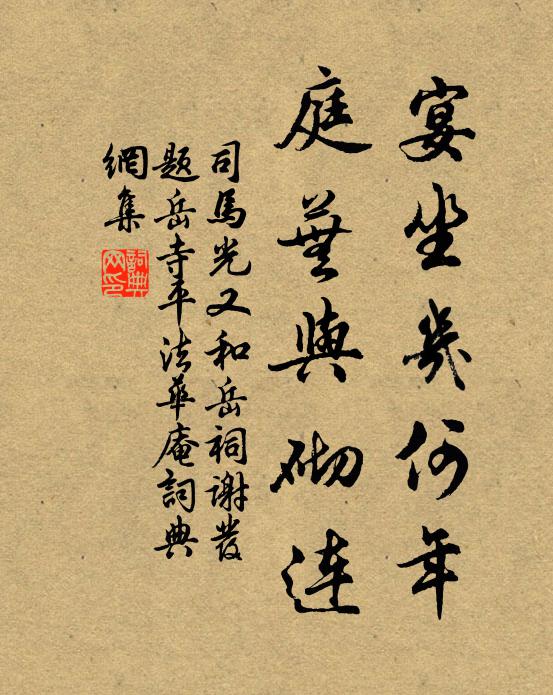 宴坐几何年
庭芜與砌連
司馬光又和岳祠謝雙
題岳寺平法華庵詞典
網集
詞典網印